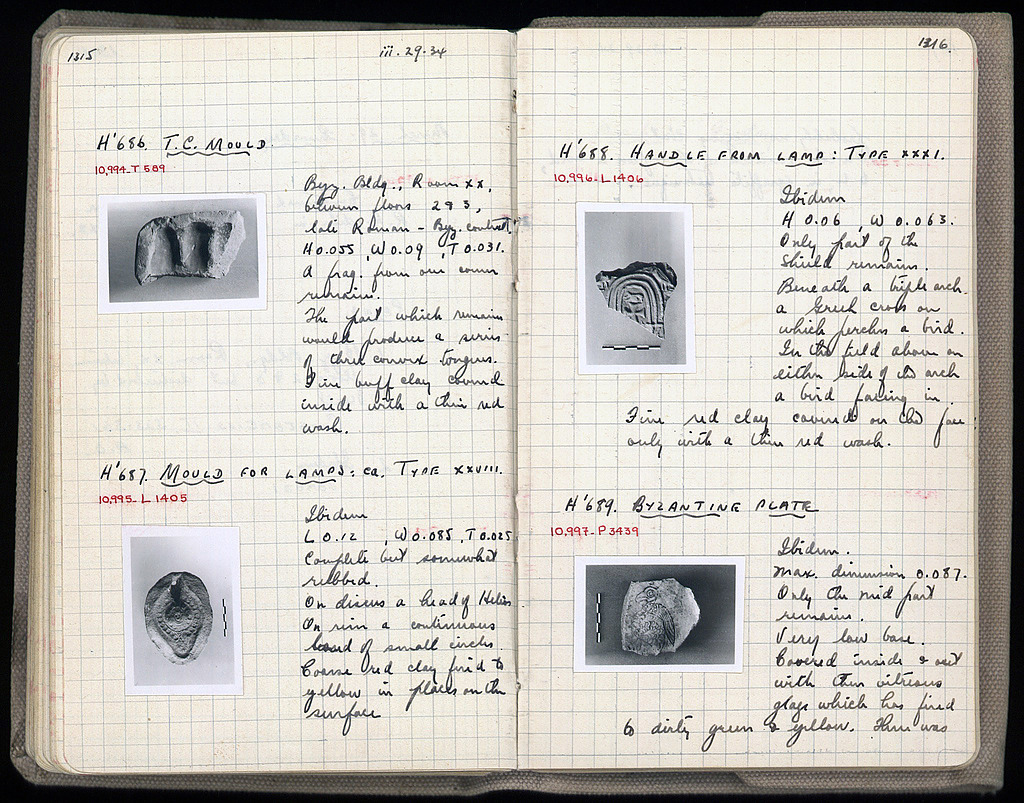 1315
iii. 29. 34
H'686. T.C. MOULD.
10,994-T 589
Byz. Bldg., Room XX,
between floors 2 & 3,
late Roman - Byz. context.
H 0.055, W 0.09, T 0.031.
A frag. from one corner
remains.
The part which remains
would produce a series
of three convex tongues.
Fine buff clay covered
inside with a thin red
wash.
H'687. MOULD FOR LAMPS: ca. TYPE XXVIII.
10,995-L 1405
Ibidem
L 0.12, W 0.085, T 0.025
Complete but somewhat
rubbed.
On discus a head of Helios
On rim a continuous
band of small circles.
Coarse red clay fired to
yellow in places on the
surface
1316.
H'688. HANDLE FROM LAMP: TYPE XXXI.
10,996-L 1406
Ibidem
H 0.06, W 0.063.
Only part of the
shield remains.
Beneath a triple arch
a Greek cross on
which perches a bird.
In the field above on
either side of the arch
a bird facing in.
Fine red clay covered on the face
only with a thin red wash.
H'689. BYZANTINE PLATE
10,997-P 3439
Ibidem.
Max. dimension 0.087.
Only the mid part
remains.
Very low base.
Covered inside & out
with thin vitreous
glaze which has fired
to dirty green & yellow. There was